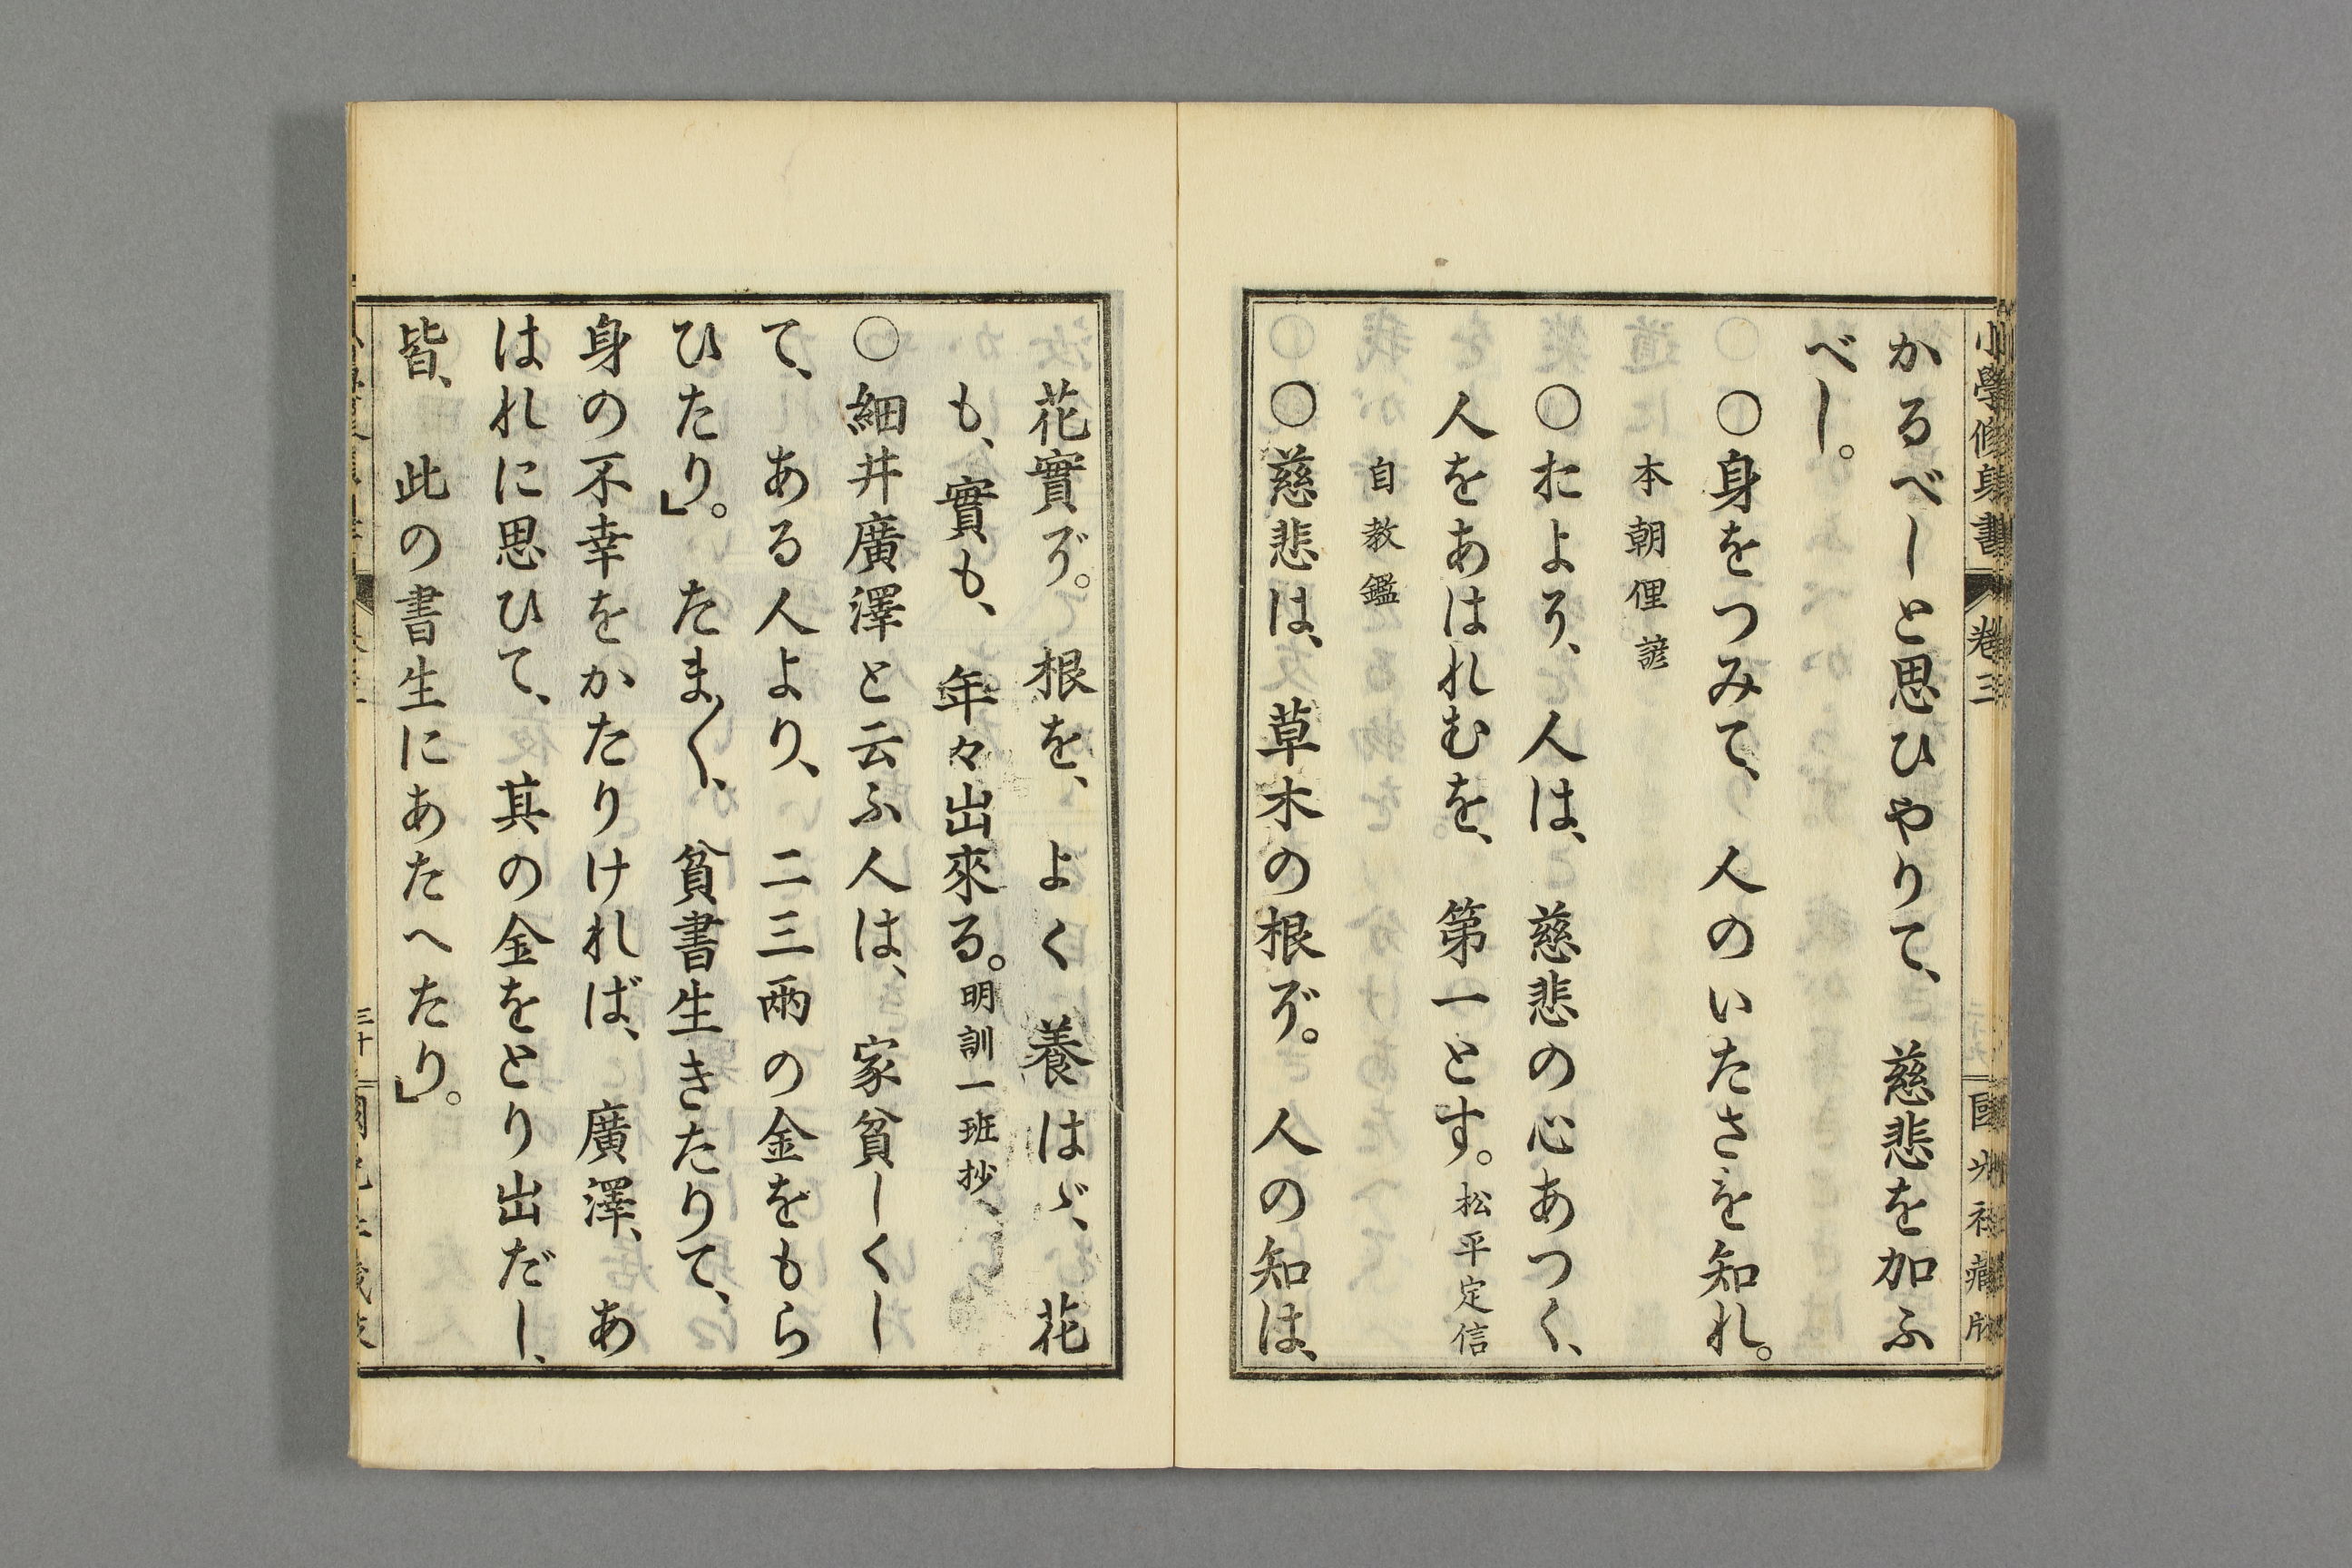 小學修身書 卷三 國光社藏版
かるべしと思ひやりて、慈悲を加ふ
べし。
○身をつみて、人のいたさを知れ。
本朝俚諺
○おおより、人は、慈悲の心あつく、
人をあはれむを、第一とす。松平定信
自教鑑
○慈悲は、草木の根ぞ。人の知は、
花實ぞ。根を、よく養はゞ、花
も、實も、年々出來る。明訓一班抄、
○細井廣澤と云ふ人は、家貧しくし
て、ある人より、二三兩の金をもら
ひたり』。たま〱、貧書生きたりて、
身の不幸をかたりければ、廣澤、あ
はれに思ひて、其の金をとり出だし、
皆、此の書生にあたへたり』。
三十